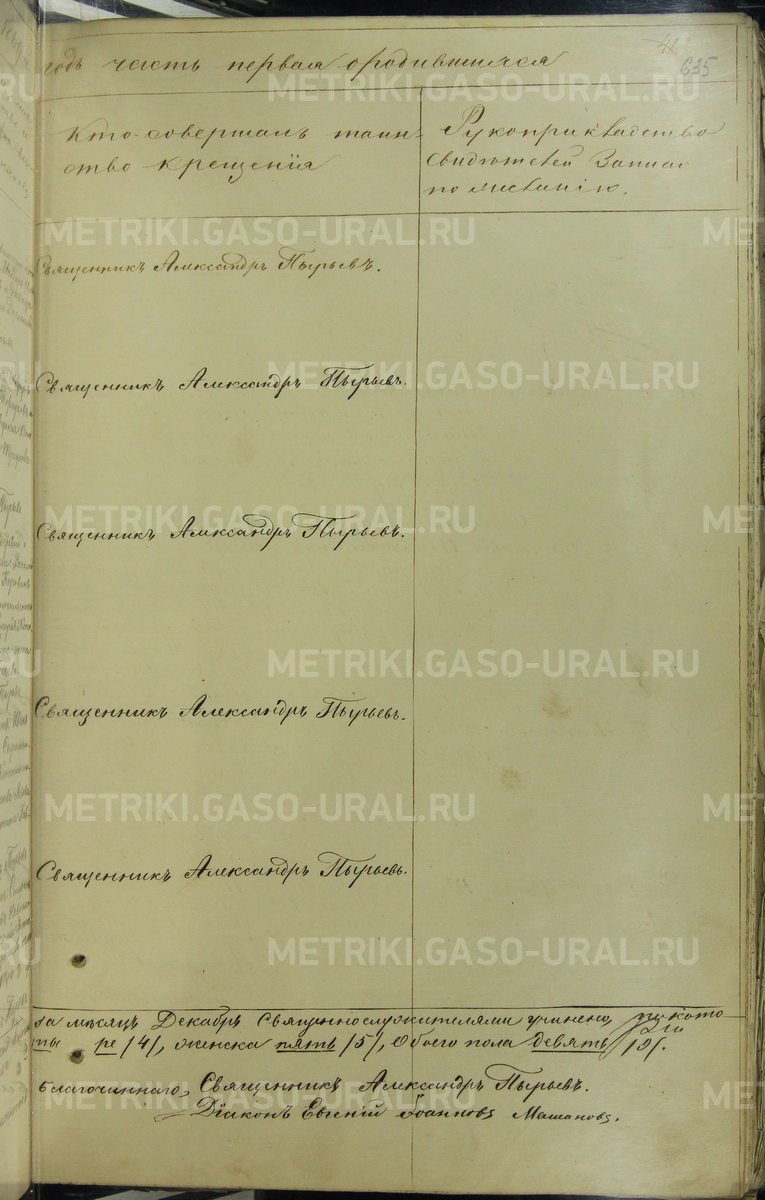 METRIKI.GASO-URAL.RU
41
635
годъ часть первая о родившихся
Кто совершалъ таин-
ство крещенія
Рукоприкладство
свидѣтелей записи
по желанію.
Священникъ Александръ Пырьевъ.
Священникъ Александръ Пырьевъ.
Священникъ Александръ Пырьевъ.
Священникъ Александръ Пырьевъ.
Священникъ Александръ Пырьевъ.
за мѣсяцъ Декабрь Священнослужителями учинено,
ре /4/, женска пять /5/, Обоего пола девять /9/.
Благочиннаго, Священникъ Александръ Пырьевъ.
Діаконъ Евгеній Іоанновъ Машановъ.